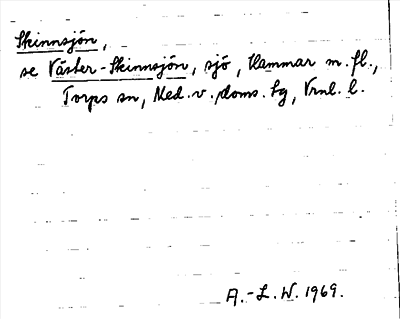 Skinnsjön,
se Väster-Skinnsjön, sjö, Hammar m. fl.,
Torps sn, Med. v. doms. hg, Vrnl. l.
A.-L. W. 1969.